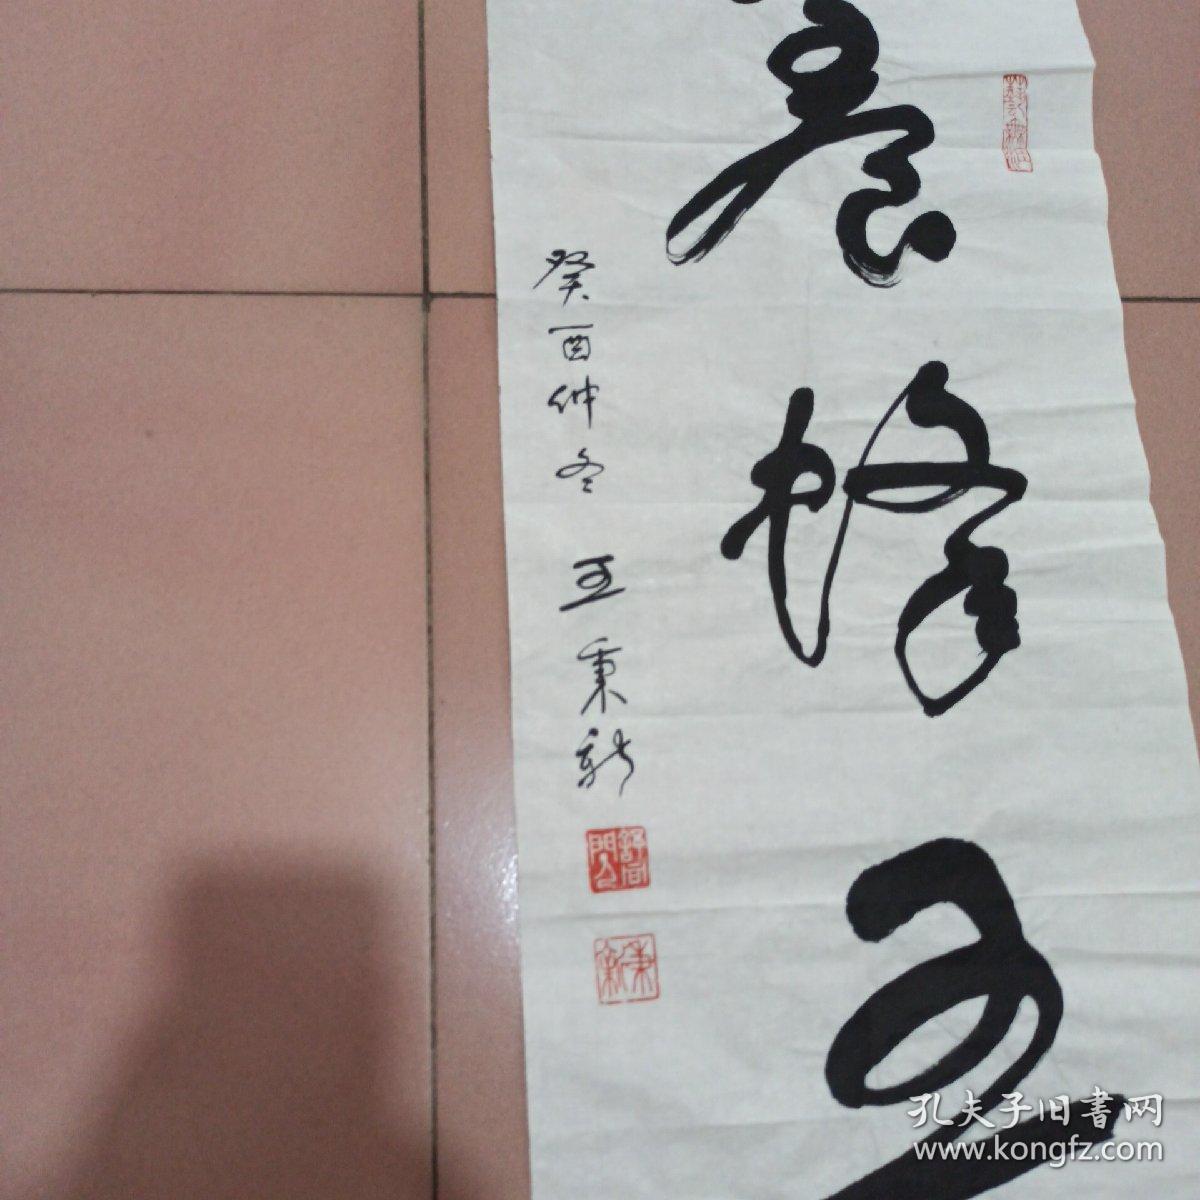 养蜂王
癸酉仲冬 王秉新
舒同門人
秉新
孔夫子旧書网
www.kongfz.com